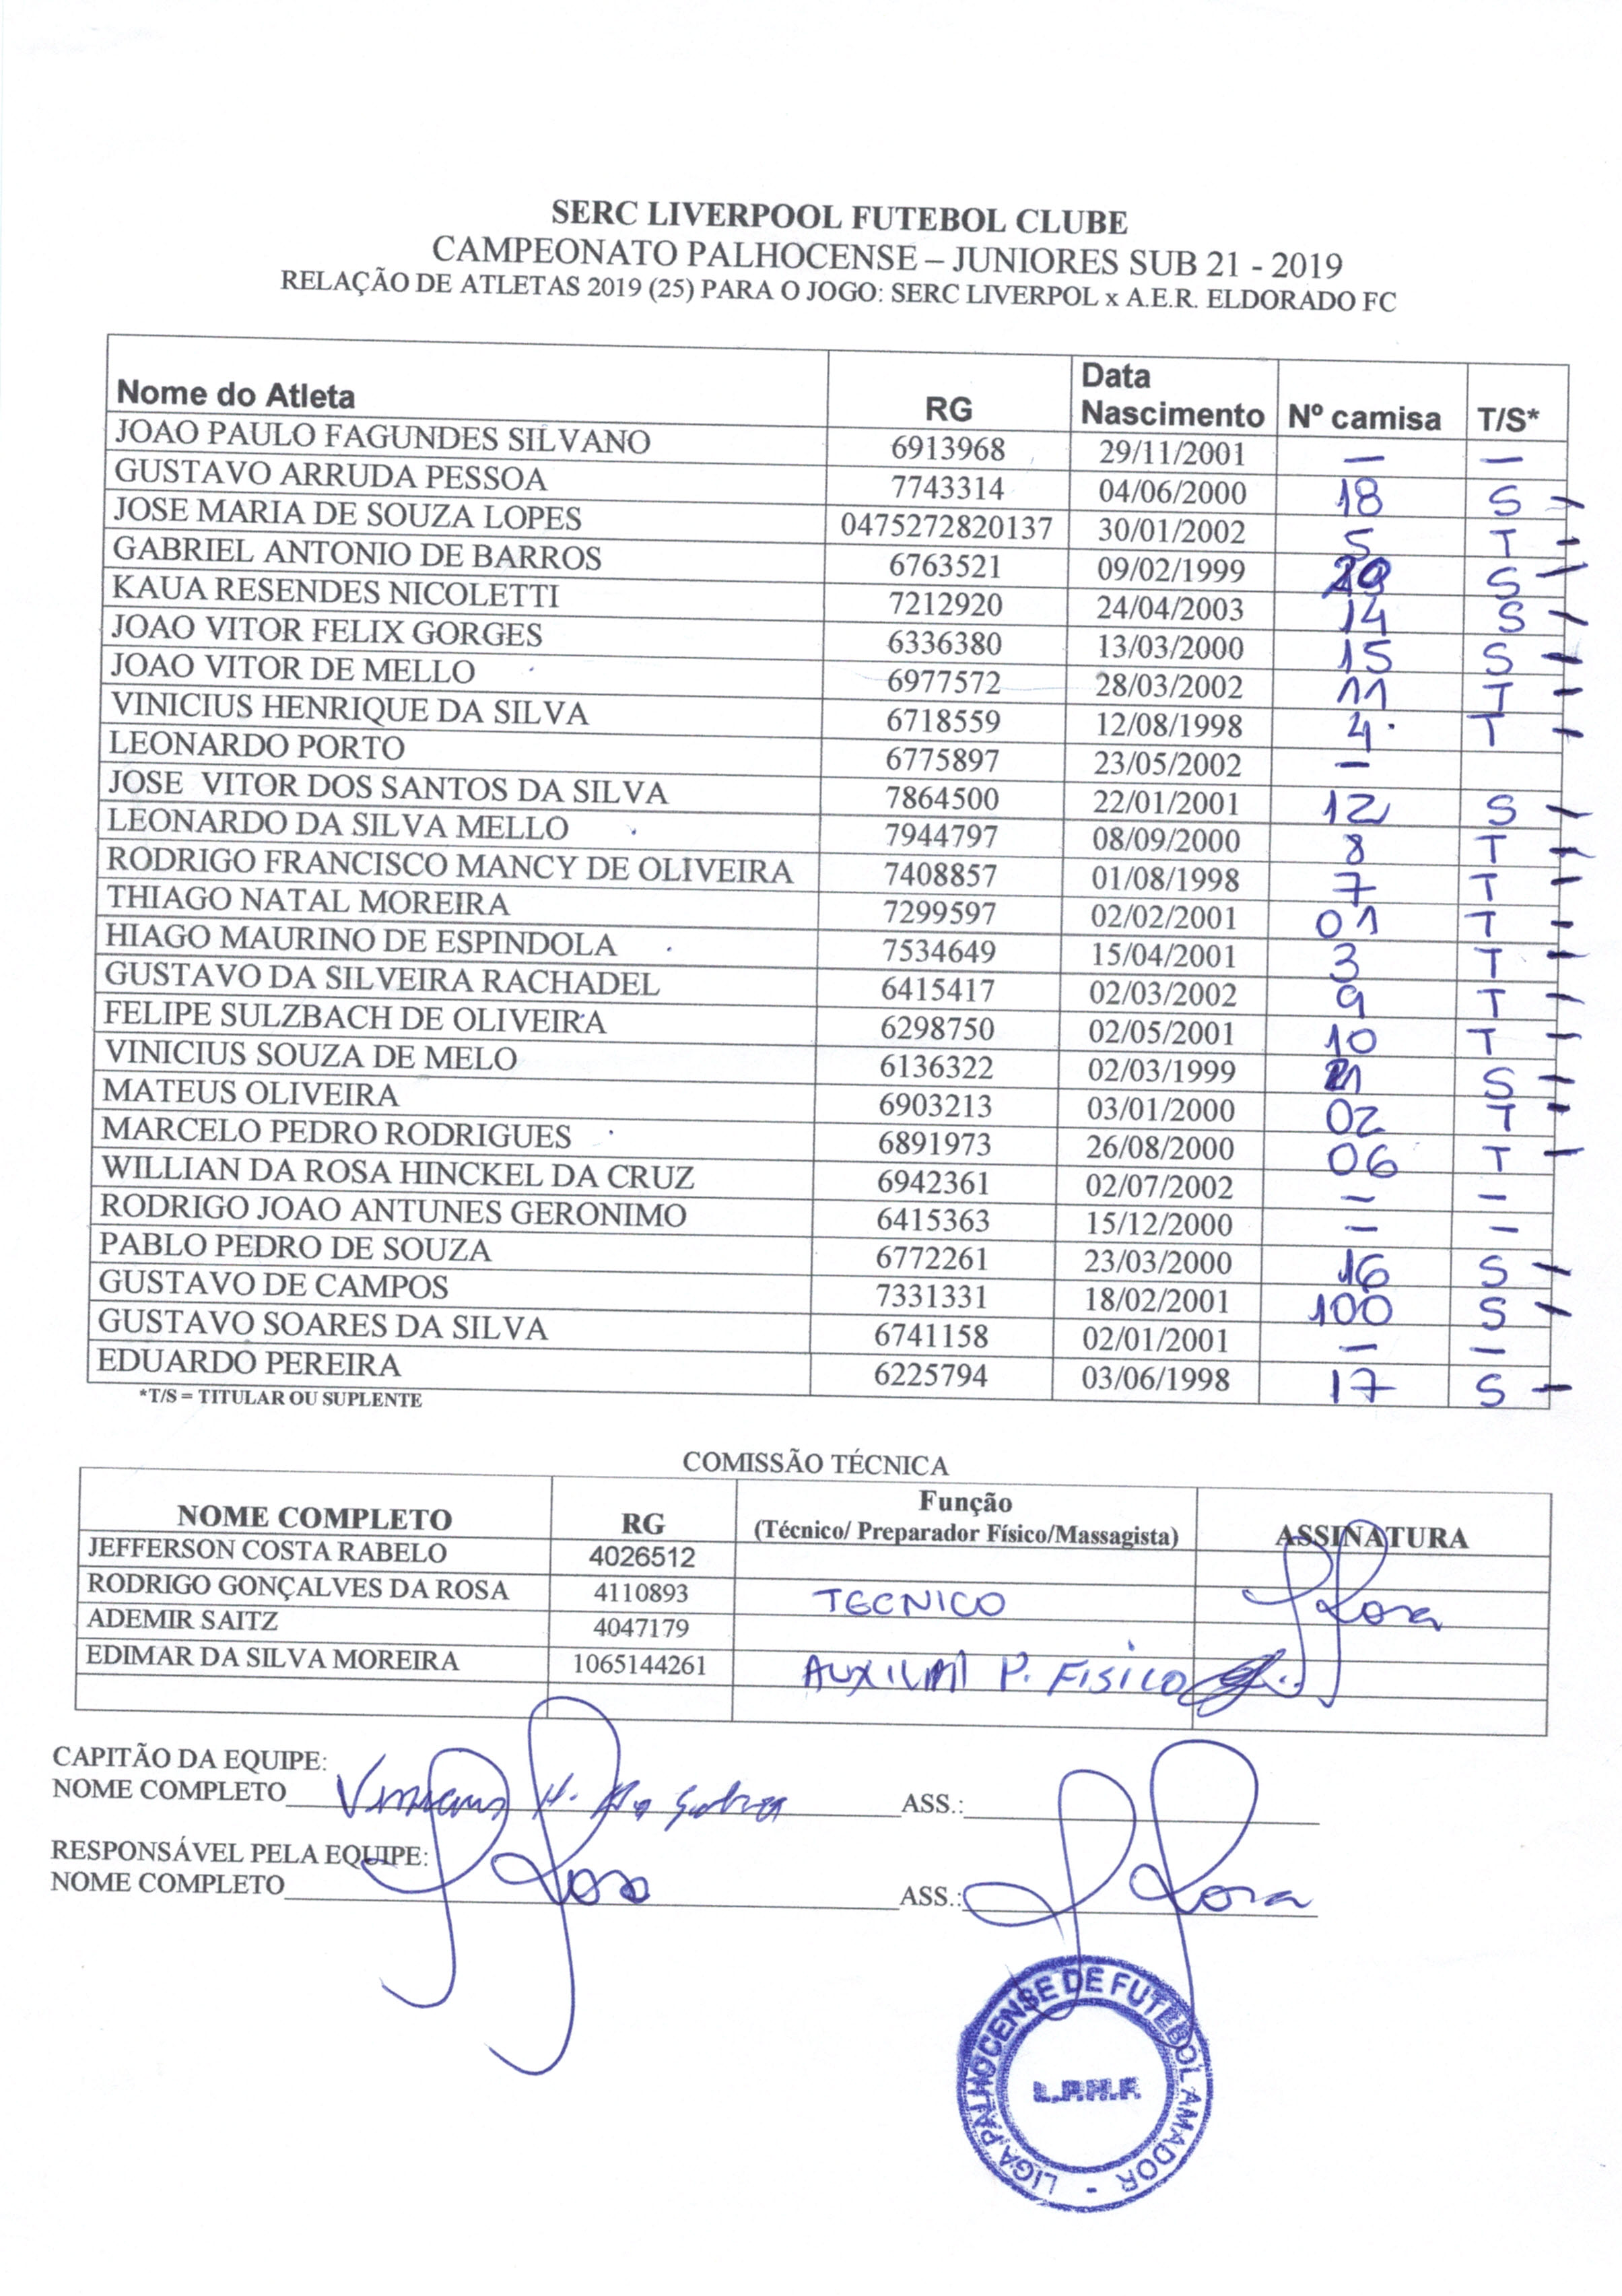 SERC LIVERPOOL FUTEBOL CLUBE
CAMPEONATO PALHOCENSE – JUNIORES SUB 21 - 2019
RELAÇÃO DE ATLETAS 2019 (25) PARA O JOGO: SERC LIVERPOL x A.E.R. ELDORADO FC
Nome do Atleta RG Data Nascimento Nº camisa T/S*
JOAO PAULO FAGUNDES SILVANO 6913968 29/11/2001 – –
GUSTAVO ARRUDA PESSOA 7743314 04/06/2000 18 S –
JOSE MARIA DE SOUZA LOPES 0475272820137 30/01/2002 5 T –
GABRIEL ANTONIO DE BARROS 6763521 09/02/1999 S –
KAUA RESENDES NICOLETTI 7212920 24/04/2003 14 S –
JOAO VITOR FELIX GORGES 6336380 13/03/2000 15 S –
JOAO VITOR DE MELLO 6977572 28/03/2002 11 T –
VINICIUS HENRIQUE DA SILVA 6718559 12/08/1998 4 T –
LEONARDO PORTO 6775897 23/05/2002 –
JOSE VITOR DOS SANTOS DA SILVA 7864500 22/01/2001 12 S –
LEONARDO DA SILVA MELLO 7944797 08/09/2000 8 T –
RODRIGO FRANCISCO MANCY DE OLIVEIRA 7408857 01/08/1998 7 T –
THIAGO NATAL MOREIRA 7299597 02/02/2001 01 T –
HIAGO MAURINO DE ESPINDOLA 7534649 15/04/2001 3 T –
GUSTAVO DA SILVEIRA RACHADEL 6415417 02/03/2002 9 T –
FELIPE SULZBACH DE OLIVEIRA 6298750 02/05/2001 10 T –
VINICIUS SOUZA DE MELO 6136322 02/03/1999 21 S –
MATEUS OLIVEIRA 6903213 03/01/2000 02 T –
MARCELO PEDRO RODRIGUES 6891973 26/08/2000 06 T –
WILLIAN DA ROSA HINCKEL DA CRUZ 6942361 02/07/2002 – –
RODRIGO JOAO ANTUNES GERONIMO 6415363 15/12/2000 – –
PABLO PEDRO DE SOUZA 6772261 23/03/2000 16 S –
GUSTAVO DE CAMPOS 7331331 18/02/2001 100 S –
GUSTAVO SOARES DA SILVA 6741158 02/01/2001 – –
EDUARDO PEREIRA 6225794 03/06/1998 17 S –
*T/S = TITULAR OU SUPLENTE
COMISSÃO TÉCNICA
NOME COMPLETO RG Função (Técnico/ Preparador Físico/Massagista) ASSINATURA
JEFFERSON COSTA RABELO 4026512
RODRIGO GONÇALVES DA ROSA 4110893 TECNICO Rosa
ADEMIR SAITZ 4047179
EDIMAR DA SILVA MOREIRA 1065144261 P. FISICO
CAPITÃO DA EQUIPE:
NOME COMPLETO Vinicius H. da Silva ASS.:
RESPONSÁVEL PELA EQUIPE:
NOME COMPLETO Rosa ASS.: Rosa
LIGA PALHOCENSE DE FUTEBOL AMADOR -